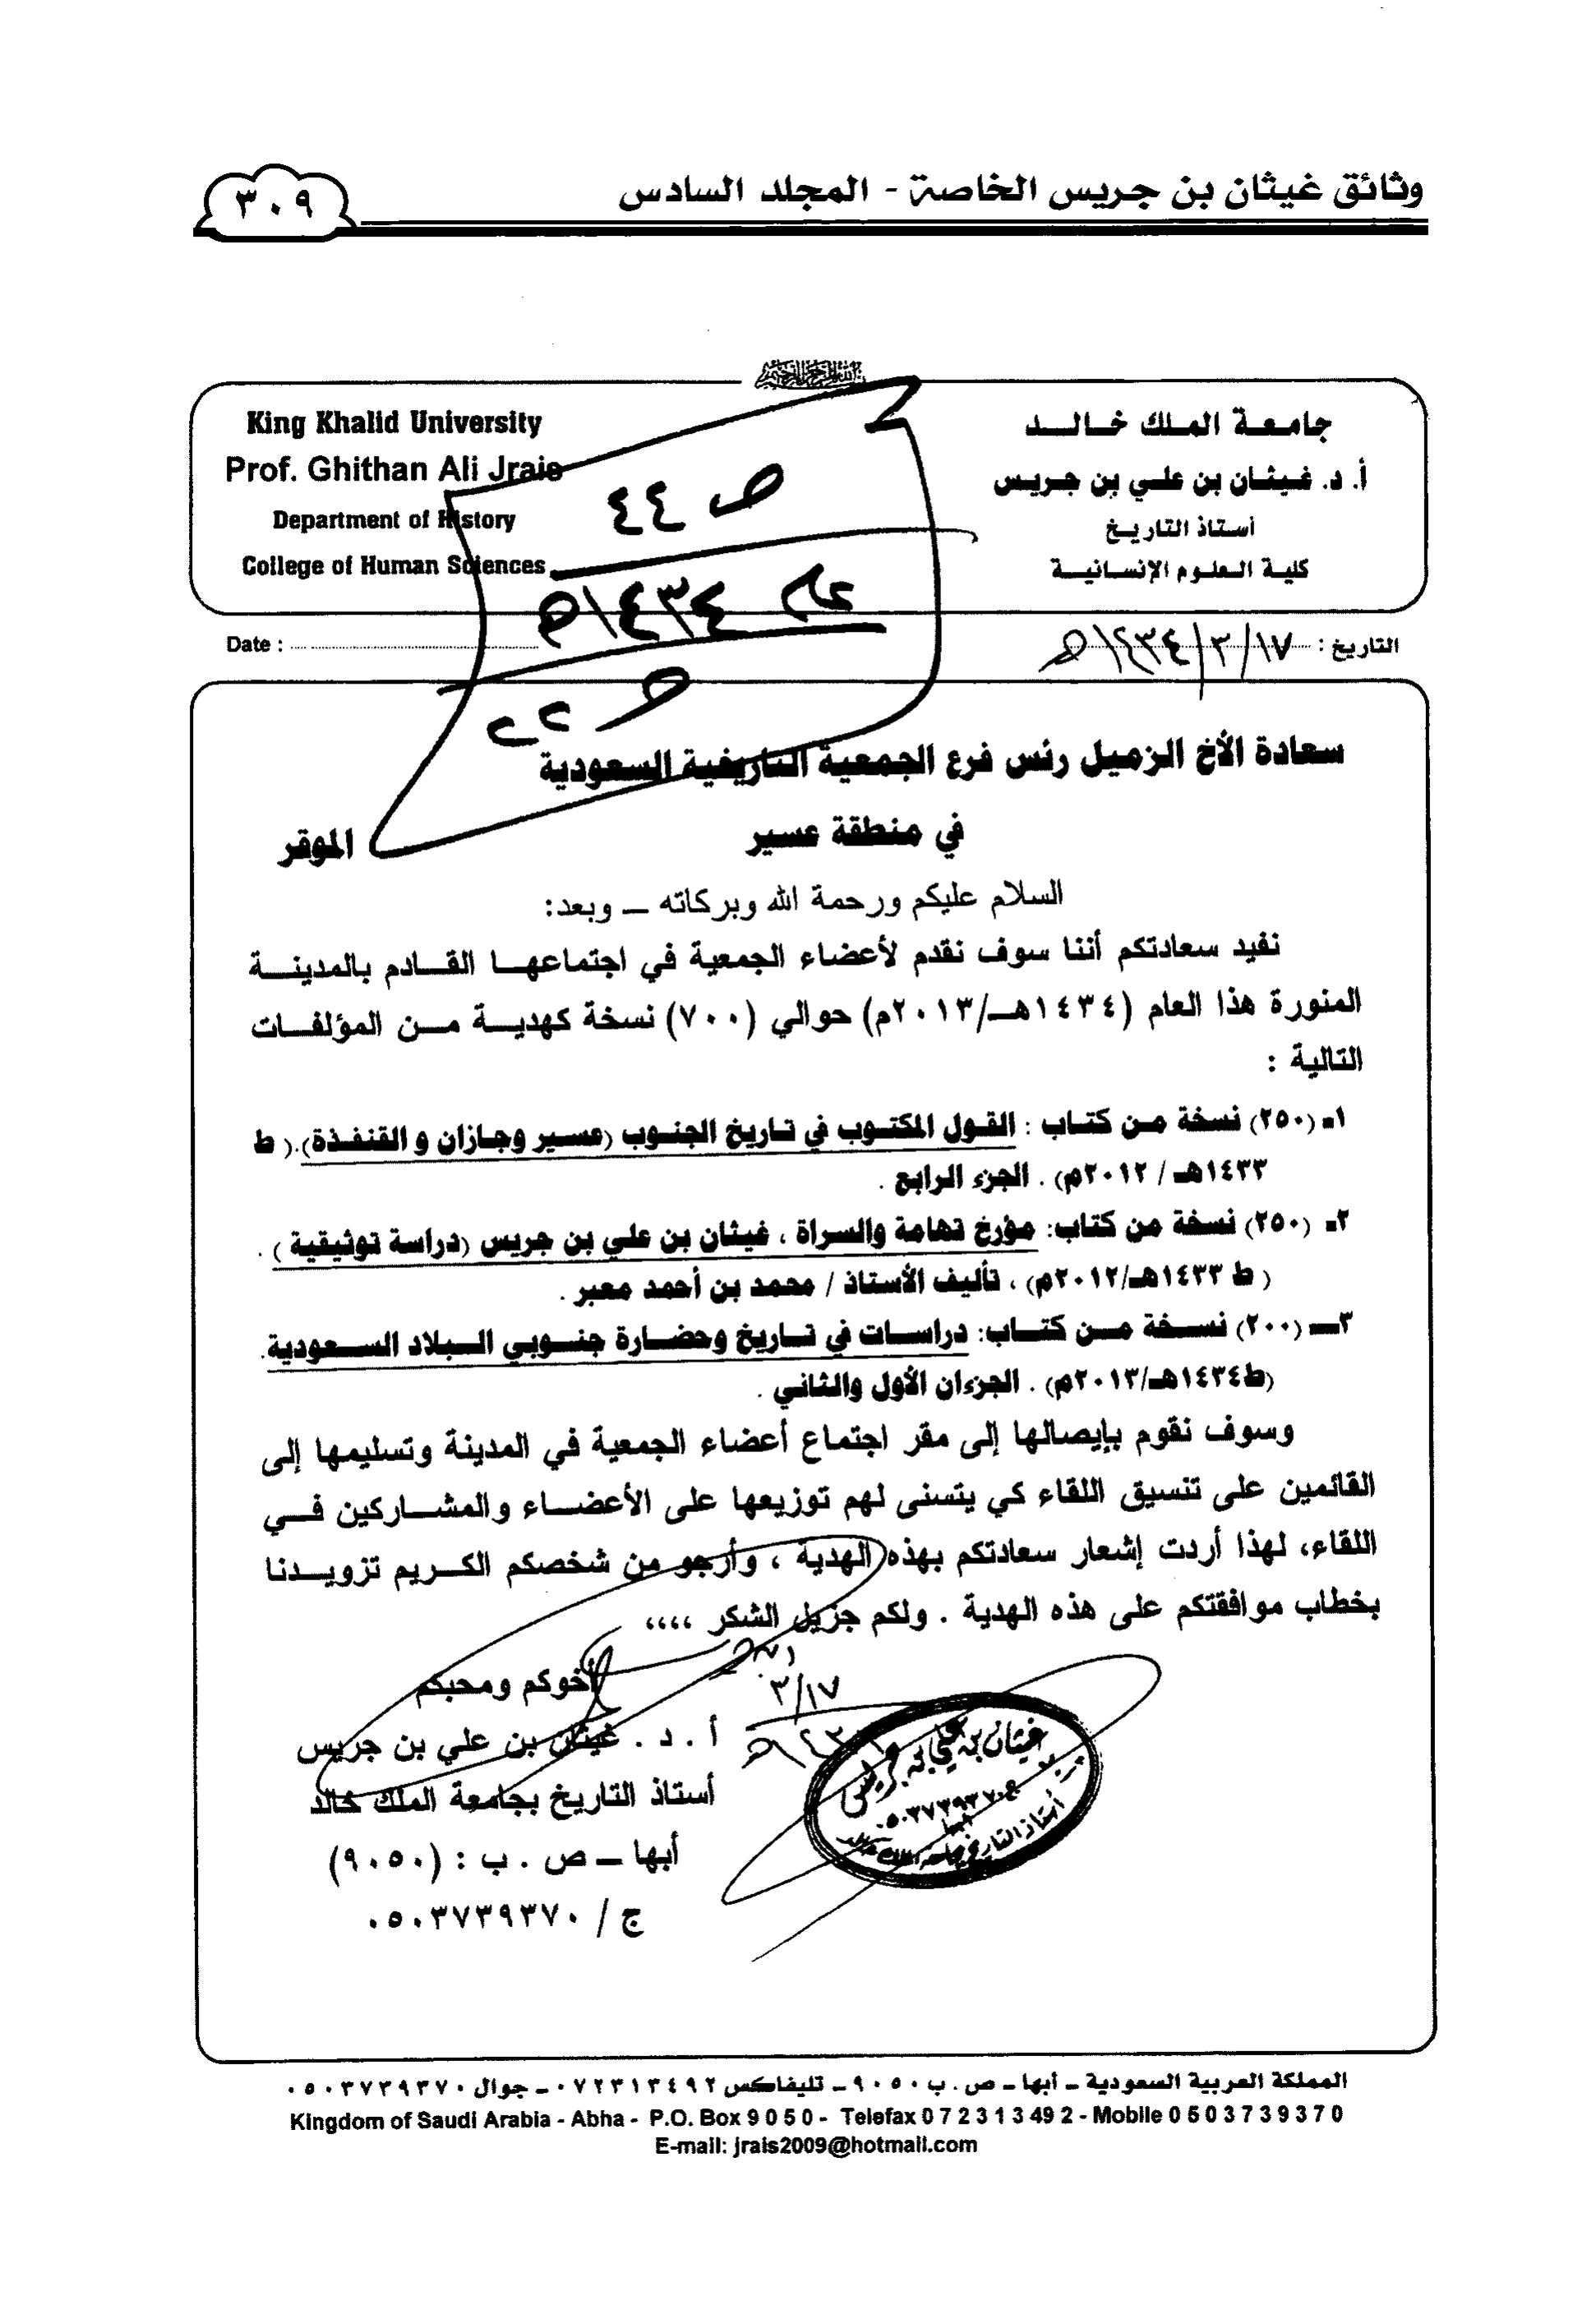 وثائق غيثان بن جريس الخاصة - المجلد السادس
٣٠٩
جامعة الملك خالد
أ. د. غيثان بن علي بن جريس
أستاذ التاريخ
كلية العلوم الإنسانية
King Khalid University
Prof. Ghithan Ali Jrais
Department of History
College of Human Sciences
ص ٤٤
عام ١٤٣٤هـ
التاريخ : ١٧/٣/١٤٣٤هـ
Date :
سعادة الأخ الزميل رئس فرع الجمعية التاريخية السعودية
في منطقة عسير الموقر
السلام عليكم ورحمة الله وبركاته – وبعد:
نفيد سعادتكم أننا سوف نقدم لأعضاء الجمعية في اجتماعها القادم بالمدينة
المنورة هذا العام (١٤٣٤هـ/٢٠١٣م) حوالي (٧٠٠) نسخة كهدية من المؤلفات
التالية :
١- (٢٥٠) نسخة من كتاب : القول المكتوب في تاريخ الجنوب (عسير وجازان و القنفذة).( ط
١٤٣٣هـ / ٢٠١٢م) . الجزء الرابع .
٢- (٢٥٠) نسخة من كتاب: مؤرخ تهامة والسراة ، غيثان بن علي بن جريس (دراسة توثيقية ) .
( ط ١٤٣٣هـ/٢٠١٢م) ، تأليف الأستاذ / محمد بن أحمد معبر .
٣– (٢٠٠) نسخة من كتاب: دراسات في تاريخ وحضارة جنوبي البلاد السعودية.
(ط١٤٣٤هـ/٢٠١٣م) . الجزءان الأول والثاني .
وسوف نقوم بإيصالها إلى مقر اجتماع أعضاء الجمعية في المدينة وتسليمها إلى
القائمين على تنسيق اللقاء كي يتسنى لهم توزيعها على الأعضاء والمشاركين في
اللقاء، لهذا أردت إشعار سعادتكم بهذه الهدية ، وأرجو من شخصكم الكريم تزويدنا
بخطاب موافقتكم على هذه الهدية . ولكم جزيل الشكر ،،،،
أخوكم ومحبكم
أ . د . غيثان بن علي بن جريس
أستاذ التاريخ بجامعة الملك خالد
أبها – ص . ب : (٩٠٥٠)
ج / ٠٥٠٣٧٣٩٣٧٠
١٧/٣
غيثان بن علي بن جريس
٠٥٠٣٧٣٩٣٧٠
أبها
أستاذ التاريخ بجامعة الملك خالد
المملكة العربية السعودية – أبها – ص . ب ٩٠٥٠ – تليفاكس ٠٧٢٣١٣٤٩٢ – جوال ٠٥٠٣٧٣٩٣٧٠
Kingdom of Saudi Arabia - Abha - P.O. Box 9 0 5 0 - Telefax 0 7 2 3 1 3 49 2 - Mobile 0 5 0 3 7 3 9 3 7 0
E-mail: jrais2009@hotmail.com